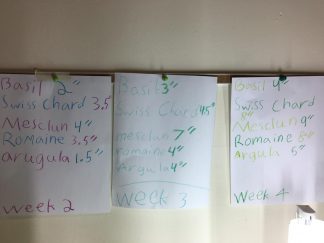 Basil 2"
Swiss Chard 3.5"
Mesclun 4"
Romaine 3.5"
arugula 1.5"
Week 2
Basil 3"
Swiss Chard 4.5"
mesclun 7"
romaine 4"
Argula 4"
Week 3
Basil 4"
Swiss Chard
Mesclun 9"
Romaine
Argula 5"
Week 4